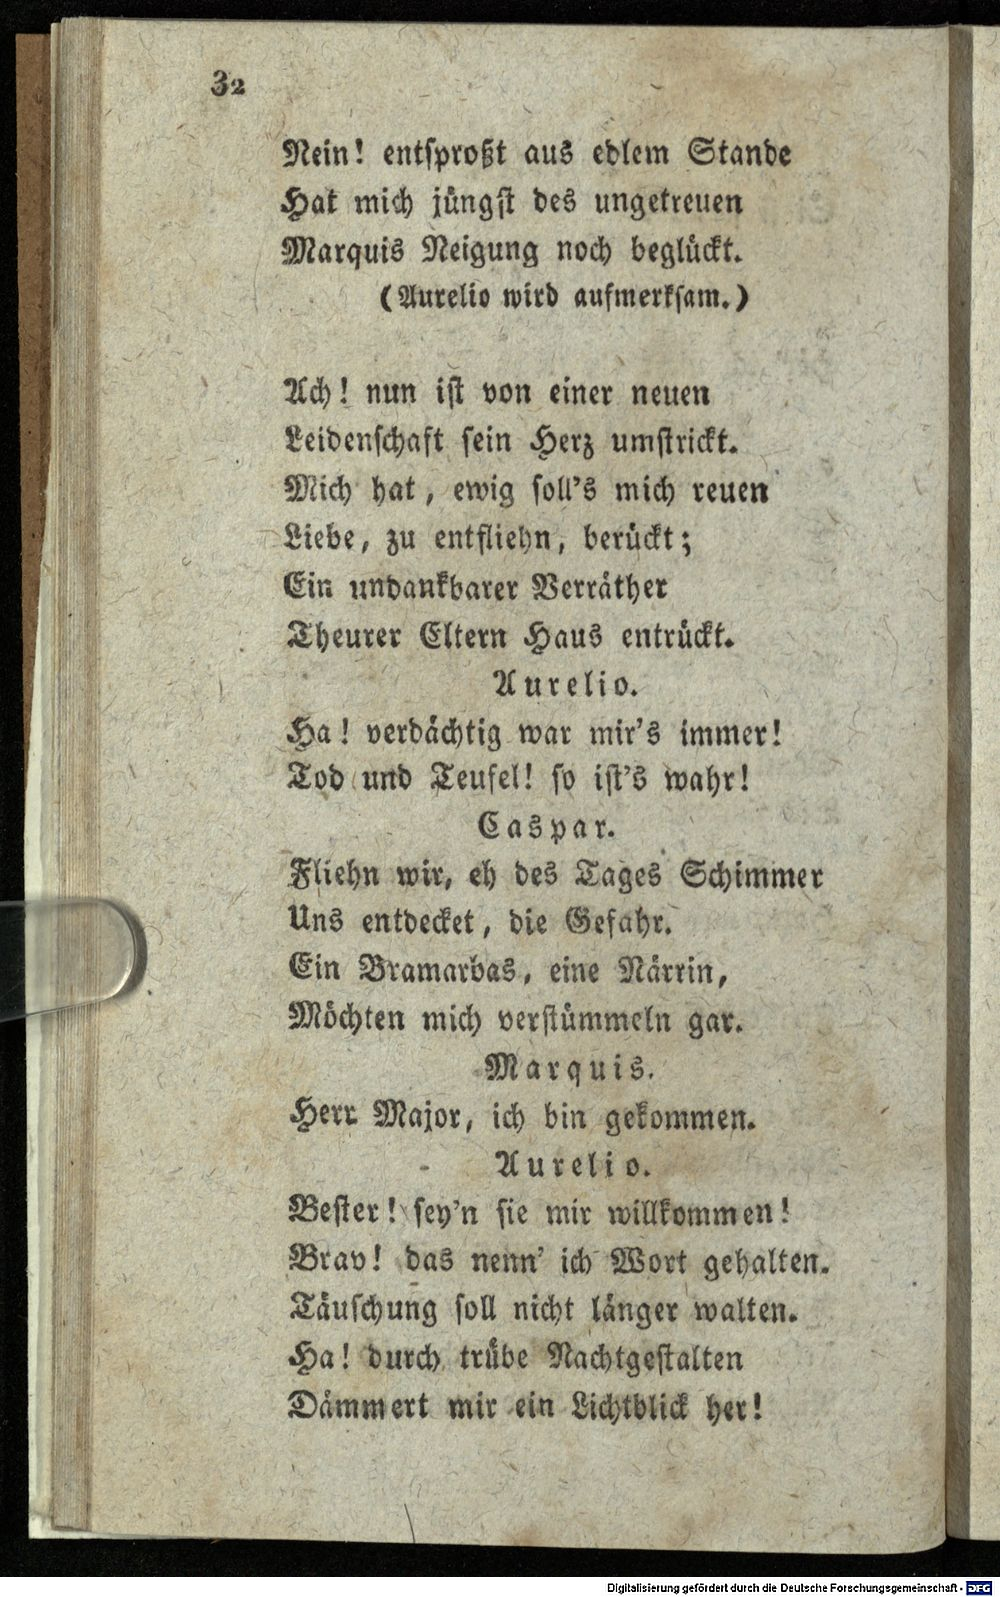 32
Nein! entsproßt aus edlem Stande
Hat mich jüngst des ungetreuen
Marquis Neigung noch beglückt.
(Aurelio wird aufmerksam.)
Ach! nun ist von einer neuen
Leidenschaft sein Herz umstrickt.
Mich hat, ewig soll's mich reuen
Liebe, zu entfliehn, berückt;
Ein undankbarer Verräther
Theurer Eltern Haus entrückt.
Aurelio.
Ha! verdächtig war mir's immer!
Tod und Teufel! so ist's wahr!
Caspar.
Fliehn wir, eh des Tages Schimmer
Uns entdecket, die Gefahr.
Ein Bramarbas, eine Närrin,
Möchten mich verstümmeln gar.
Marquis.
Herr Major, ich bin gekommen.
Aurelio.
Bester! sey'n sie mir willkommen!
Brav! das nenn' ich Wort gehalten.
Täuschung soll nicht länger walten.
Ha! durch trübe Nachtgestalten
Dämmert mir ein Lichtblick her!
Digitalisierung gefördert durch die Deutsche Forschungsgemeinschaft - DFG